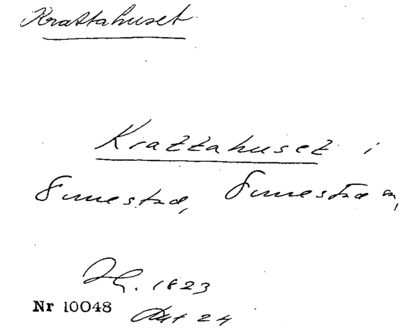 Krattahuset
Krattahuset i
Simestad, Simestad sn,
JG. 1823
Nr 10048 Avt 24